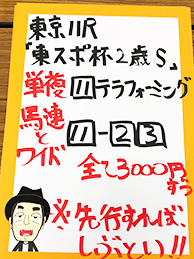 東京11R
「東スポ杯2歳S」
単複 11テラフォーミング
馬連とワイド 11-23
全て3000円ずつ
※先行すれば、
しぶとい!!